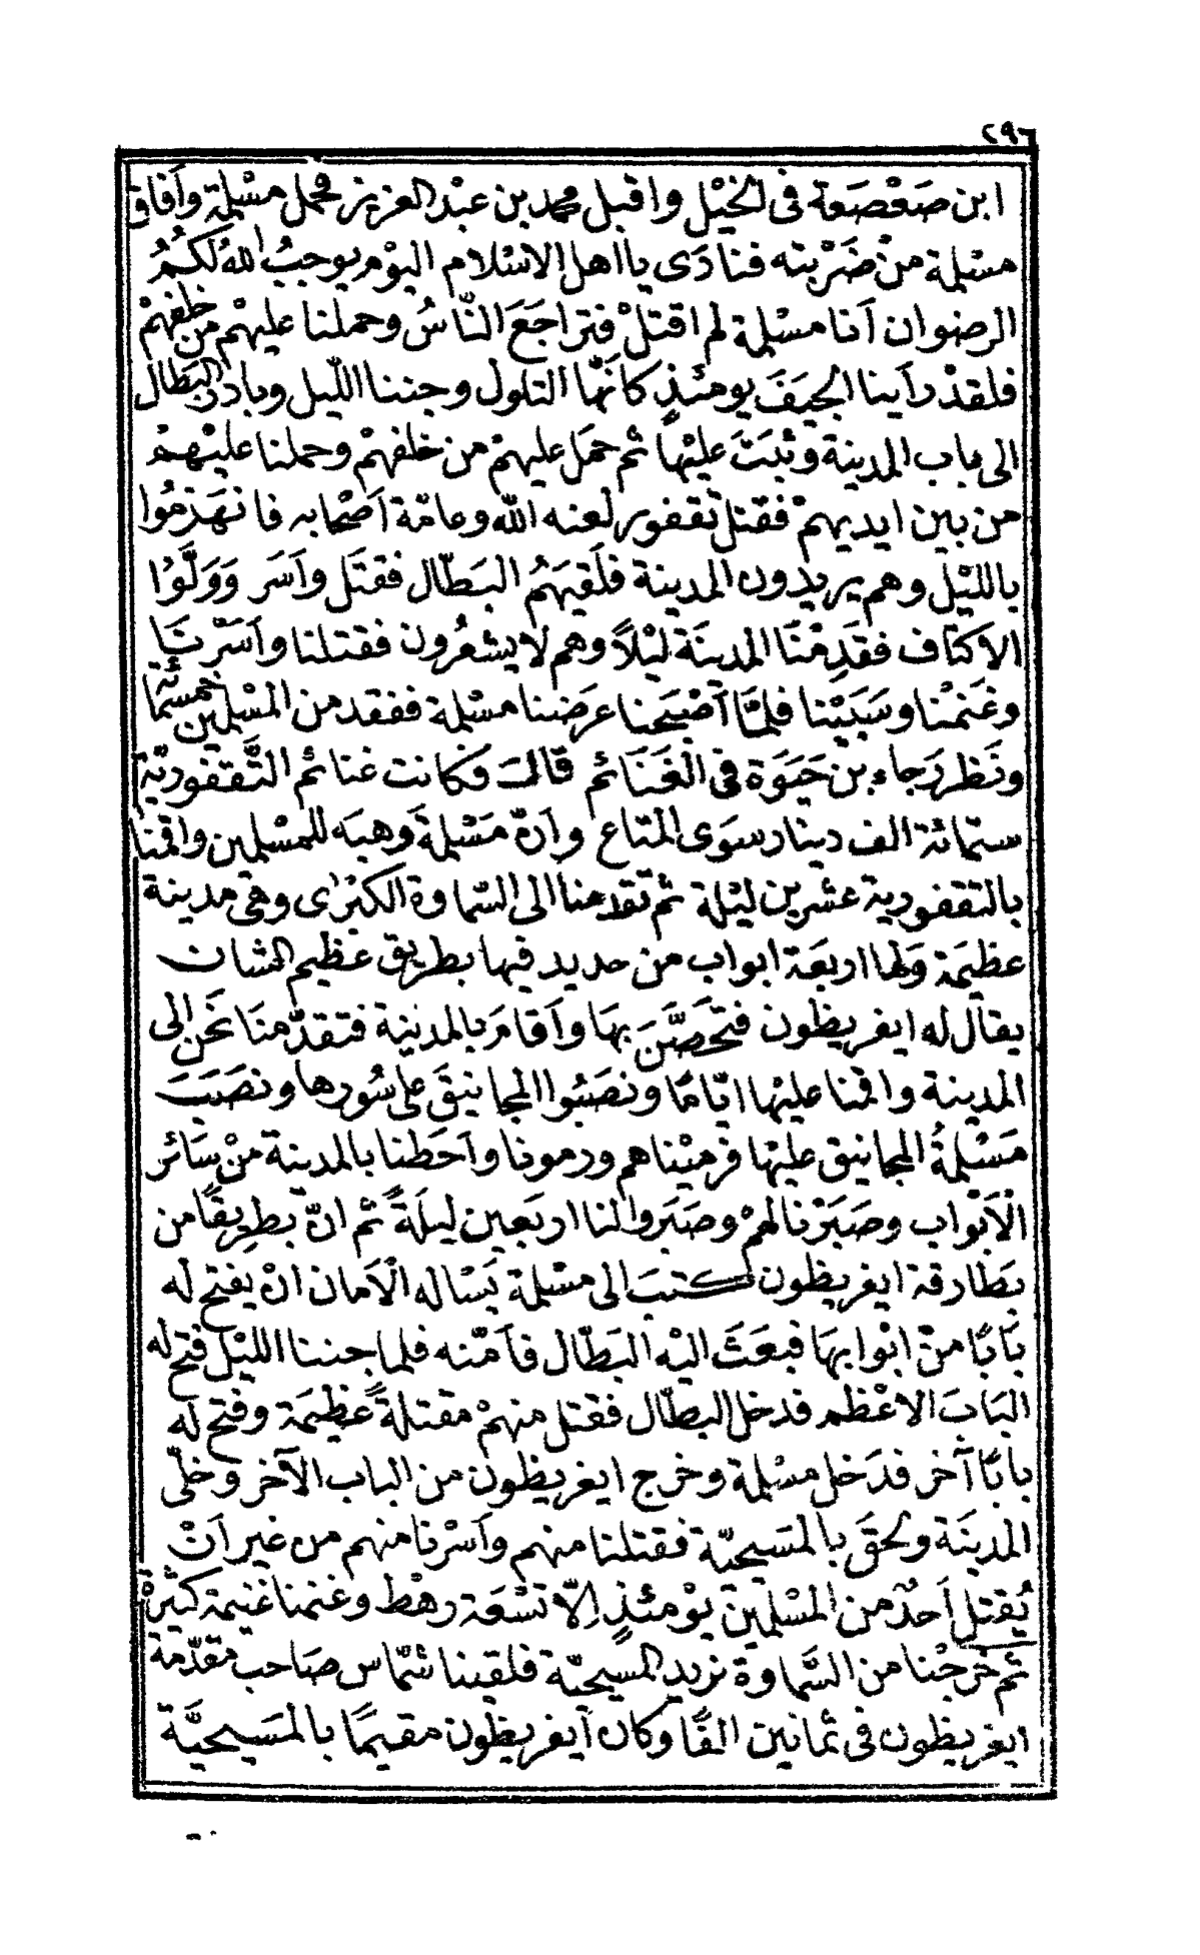 ٢٩٦
ابن صَعْصَعَة فى الخَيْل واقبل محمد بن عبْد العزيز فحمل مسْلمة وَأَفاق
مسْلمة منْ ضَرْبته فنادَى يا اهل الاسْلام اليوْم يوجبُ اللهُ لكُمُ
الرضوان أنا مسْلمة لم اقتلْ فتراجَعَ النّاسُ وحملنا عليهْم من خلفهمْ
فلقدْ رأينا الجيَفَ يومئذٍ كأنَّها التلول وجننا اللّيل وبادر البَطال
الى باب المدينة وثبَتَ عليْها ثم حمَل عليهمْ من خلفهمْ وحملنا عليْهمْ
من بين ايديهمْ فقتل تقفور لعنه الله وعامّة أصْحابه فانهَزمُوا
بالليْل وهم يريدون المدينة فلَقيَهُمُ البَطّال فقتَل وأسَر وَوَلَّوْا
الاكتاف فقَدِمْنَا المدينَة ليْلاً وهم لا يشعُرون فقتلنا وأسَرْنا
وغَنمْنا وسَبَيْنا فلمَّا أصْبَحنا عرَضنا مسْلمة ففقد من المسْلمين خمسمائة
ونَظر رَجاء بن حَيَوَة فى الغَنَائم قال فكانت غنائم التَّقفوريّة
ستمائة الف دينار سوَى المتاع وأنّ مَسْلمةَ وَهبَه للمسْلمين واقمنا
بالتقفورية عشرين ليْلة ثم تقدمنا الى السّماوة الكبْرٰى وهى مدينة
عظيمَة وَلها اربعَة ابواب من حديد فيها بطريق عظيم الشان
يقال له ايفريظون فتحَصَّنَ بهَا وأقامَ بالمدينة فتقدّمنَا نحَن الى
المدينة واقمنا عليْها ايّامًا ونصَبُوا المجانيقَ على سُورها ونصَبَ
مَسْلمةُ المجانيق عليْها فرميْناهم ورمونا وأحَطنا بالمدينة منْ سَائر
الْأبْواب وصَبَرْنا لهمْ وصَبَروا لنا اربَعين ليلَةً ثم انّ بطرِيقًا من
بَطارقة ايفريظون كتبَ الى مسْلمة يَسْاله الْأمان انْ يفتح له
بَابًا منْ ابْوابهَا فبعَثَ اليْه البَطّال فأمّنه فلما جننا الليْل فتح له
البَابَ الاعْظم فدخل البطّال فقتل منهمْ مقتلةً عظيمَة وفتح له
بابًا آخر فدَخل مسْلمة وخرج ايفريظون من الباب الآخر وخلّى
المدينَة ولحقَ بالمسَيحيّة فقتلنا منهم وأسَرْنا منهم من غير أنْ
يُقتل أحدٌ من المسْلمينَ يوْمئذٍ اِلّا تسْعَة رهْط وغنمنا غنيمة كثيرةً
ثم خرَجْنا من السَّماوة نريد المسيحيّة فلقينا شمّاس صَاحب مقدّمة
ايفريظون فى ثمانين الفًا وكان أيفريظون مقيمًا بالمَسيحيَّة